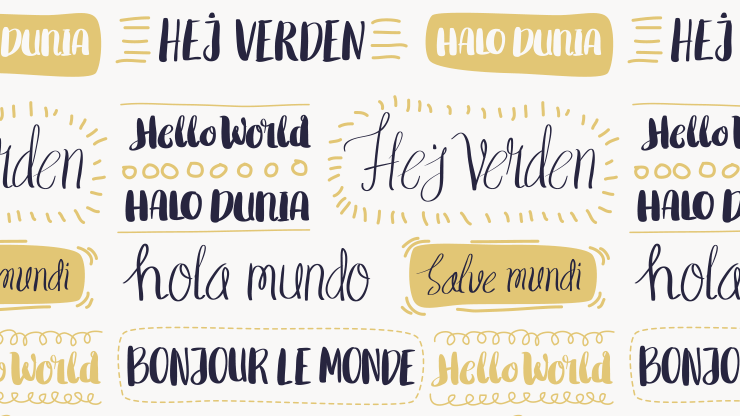 DUNIA
HEJ VERDEN
HALO DUNIA
HEJ
rden
Hello World
HALO DUNIA
Hej Verden
Hello
HALO D
mundi
hola mundo
Salve mundi
hola
o World
BONJOUR LE MONDE
Hello World
BONJO